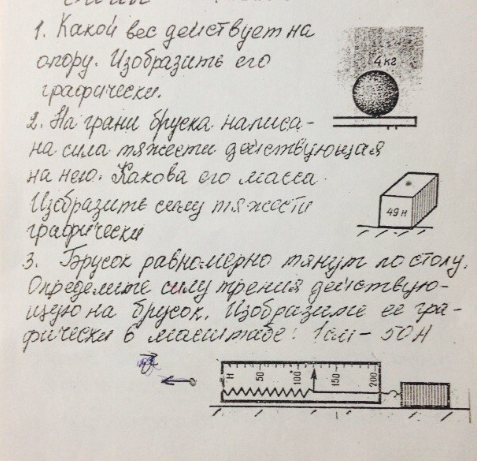 1. Какой вес действует на
опору. Изобразить его
графически.
4 кг
2. На грани бруска написа-
на сила тяжести действующая
на нею. Какова его масса
Изобразить силу тяжести
графически
49 Н
3. Брусок равномерно тянут по столу.
Определите силу трения действую-
щую на брусок. Изобразите ее гра-
фически в масштабе: 1см - 50Н
Н 50 100 150 200